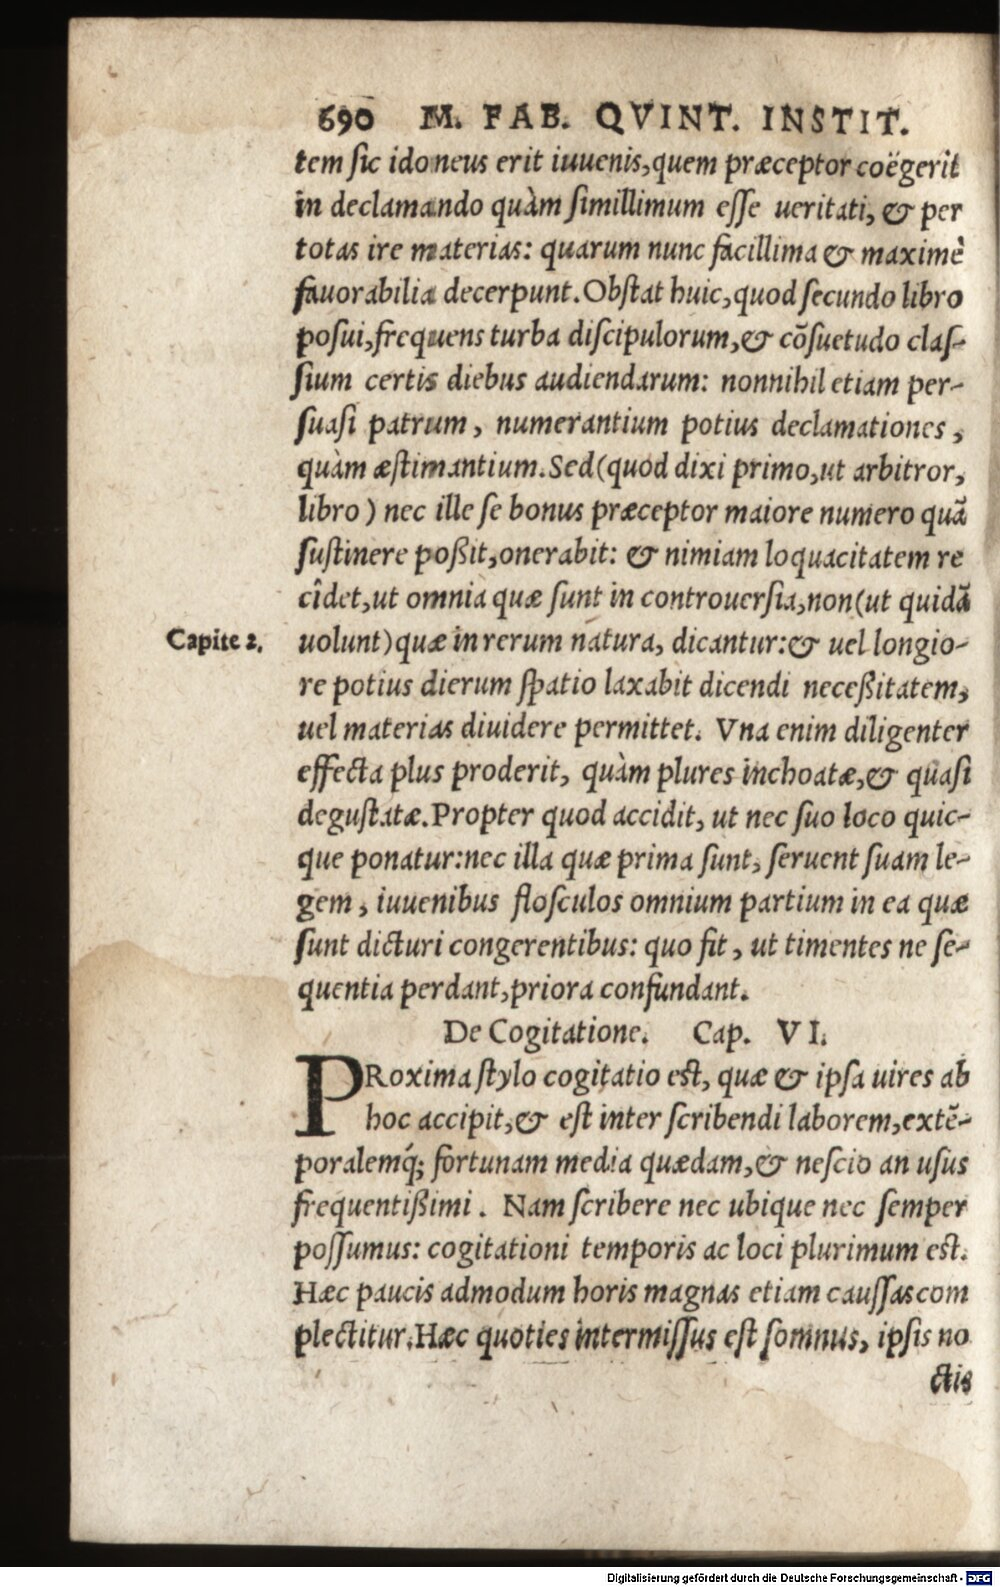 690 M. FAB. QVINT. INSTIT.
tem sic idoneus erit iuuenis, quem præceptor coëgerit
in declamando quàm simillimum esse ueritati, & per
totas ire materias: quarum nunc facillima & maximè
fauorabilia decerpunt. Obstat huic, quod secundo libro
posui, frequens turba discipulorum, & cõsuetudo clas-
sium certis diebus audiendarum: nonnihil etiam per-
suasi patrum, numerantium potius declamationes,
quàm æstimantium. Sed (quod dixi primo, ut arbitror,
libro) nec ille se bonus præceptor maiore numero quã
sustinere poßit, onerabit: & nimiam loquacitatem re
cîdet, ut omnia quæ sunt in controuersia, non (ut quidã
Capite 2. uolunt) quæ in rerum natura, dicantur: & uel longio-
re potius dierum spatio laxabit dicendi neceßitatem,
uel materias diuidere permittet. Vna enim diligenter
effecta plus proderit, quàm plures inchoatæ, & quasi
degustatæ. Propter quod accidit, ut nec suo loco quic-
que ponatur: nec illa quæ prima sunt, seruent suam le-
gem, iuuenibus flosculos omnium partium in ea quæ
sunt dicturi congerentibus: quo fit, ut timentes ne se-
quentia perdant, priora confundant.
De Cogitatione. Cap. VI.
PRoxima stylo cogitatio est, quæ & ipsa uires ab
hoc accipit, & est inter scribendi laborem, extẽ-
poralemq́; fortunam media quædam, & nescio an usus
frequentißimi. Nam scribere nec ubique nec semper
possumus: cogitationi temporis ac loci plurimum est.
Hæc paucis admodum horis magnas etiam caussas com
plectitur. Hæc quoties intermissus est somnus, ipsis no
ctis
Digitalisierung gefördert durch die Deutsche Forschungsgemeinschaft - DFG